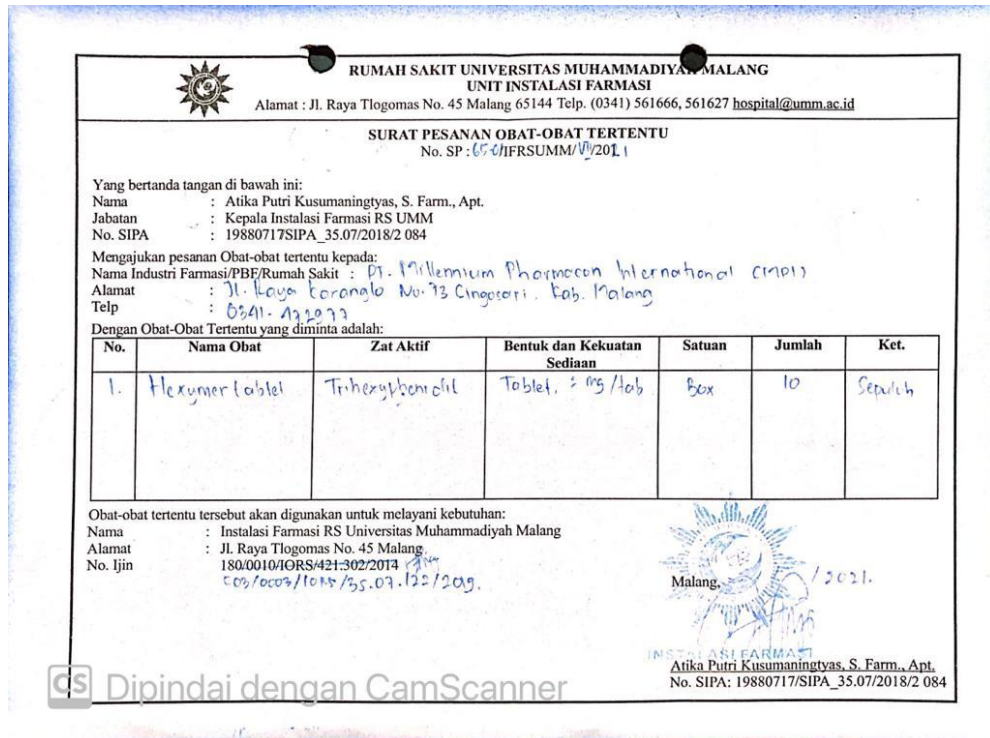 RUMAH SAKIT UNIVERSITAS MUHAMMADIYAH MALANG
UNIT INSTALASI FARMASI
Alamat : Jl. Raya Tlogomas No. 45 Malang 65144 Telp. (0341) 561666, 561627 hospital@umm.ac.id
SURAT PESANAN OBAT-OBAT TERTENTU
No. SP : /IFRSUMM/VII/2021
Yang bertanda tangan di bawah ini:
Nama : Atika Putri Kusumaningtyas, S. Farm., Apt.
Jabatan : Kepala Instalasi Farmasi RS UMM
No. SIPA : 19880717SIPA_35.07/2018/2 084
Mengajukan pesanan Obat-obat tertentu kepada:
Nama Industri Farmasi/PBF/Rumah Sakit : PT. Millennium Pharmacon International (MPI)
Alamat : Jl. Raya Karanglo No. 73 Singosari. Kab. Malang
Telp : 0341-
Dengan Obat-Obat Tertentu yang diminta adalah:
No. Nama Obat Zat Aktif Bentuk dan Kekuatan Sediaan Satuan Jumlah Ket.
1. Hexymer tablet Trihexyphenidil Tablet, 2 mg/tab Box 10 Sepuluh
Obat-obat tertentu tersebut akan digunakan untuk melayani kebutuhan:
Nama : Instalasi Farmasi RS Universitas Muhammadiyah Malang
Alamat : Jl. Raya Tlogomas No. 45 Malang
No. Ijin 180/0010/IORS/421.302/2014
003/0003/IORS/35.07.122/2019.
Malang, /2021.
INSTALASI FARMASI
Atika Putri Kusumaningtyas, S. Farm., Apt.
No. SIPA: 19880717/SIPA_35.07/2018/2 084
CS Dipindai dengan CamScanner